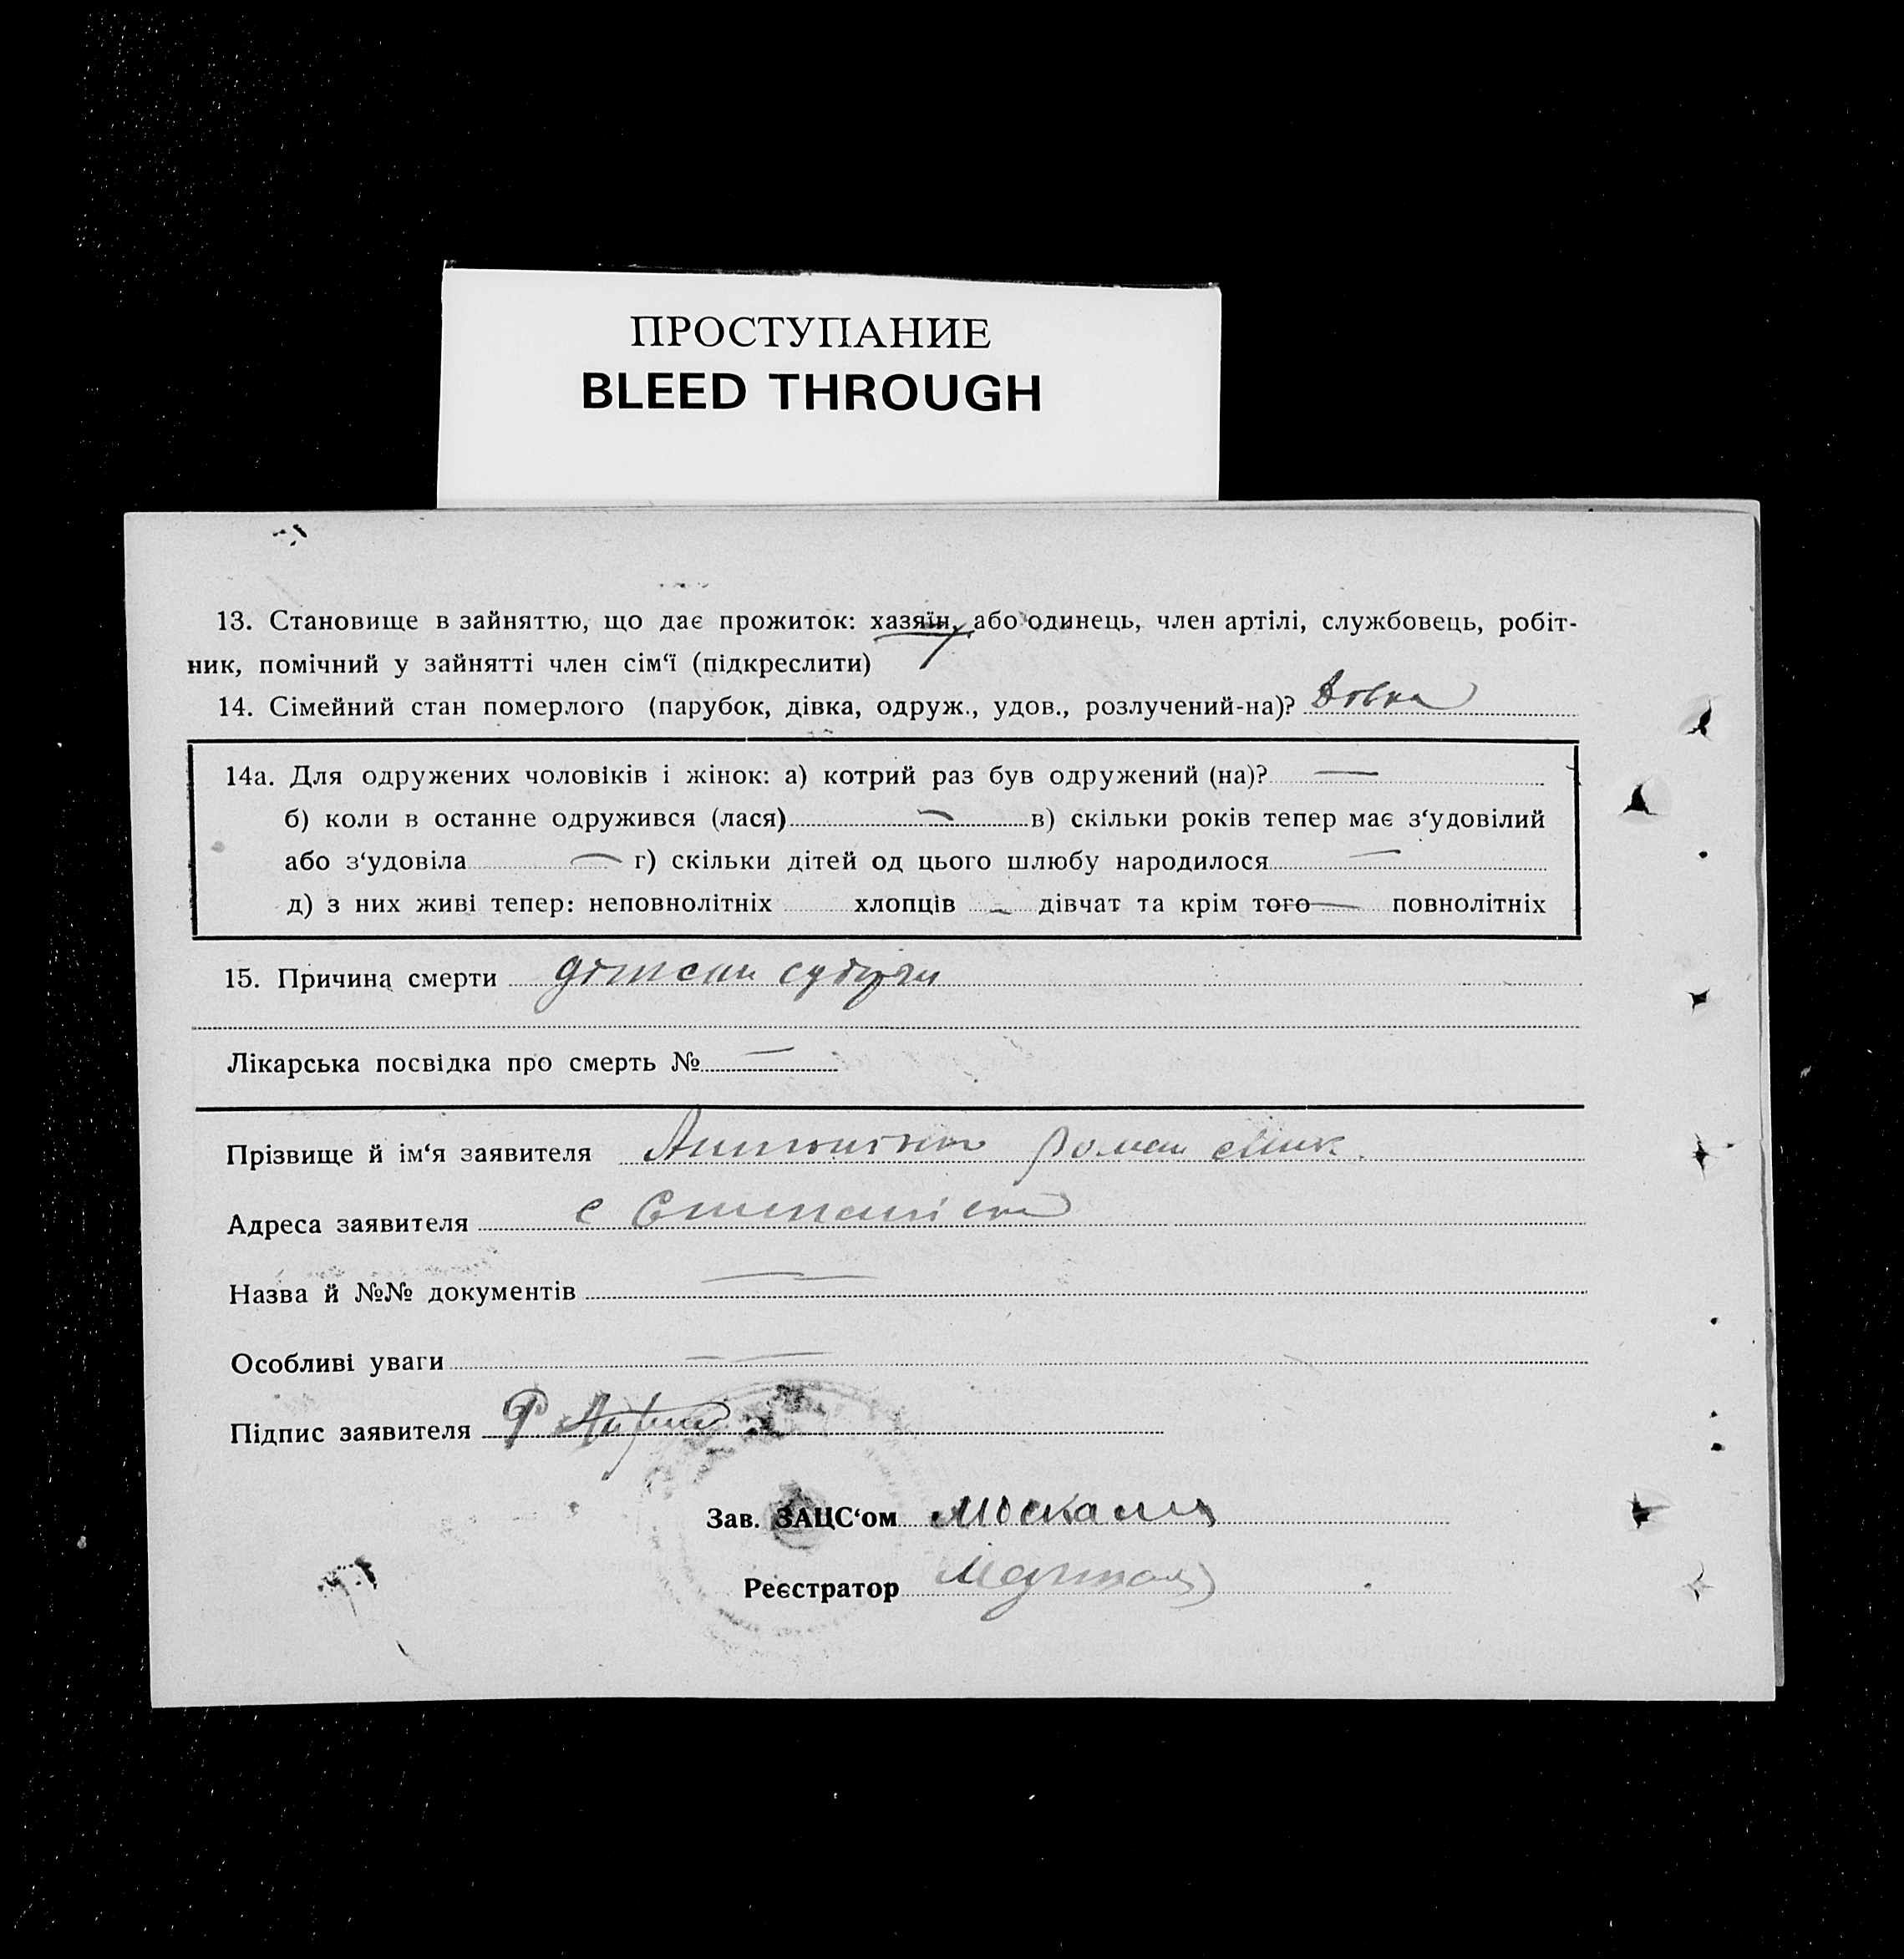 ПРОСТУПАНИЕ
BLEED THROUGH
13. Становище в зайняттю, що дає прожиток: хазяїн, або одинець, член артілі, службовець, робіт-
ник, помічний у зайнятті член сім‘ї (підкреслити)
14. Сімейний стан померлого (парубок, дівка, одруж., удов., розлучений-на)? Дівка
14а. Для одружених чоловіків і жінок: а) котрий раз був одружений (на)? —
б) коли в останне одружився (лася) — в) скільки років тепер має з‘удовілий
або з‘удовіла — г) скільки дітей од цього шлюбу народилося —
д) з них живі тепер: неповнолітніх хлопців — дівчат та крім того — повнолітніх
15. Причина смерти
Лікарська посвідка про смерть № —
Прізвище й ім‘я заявителя Роман
Адреса заявителя с
Назва й №№ документів —
Особливі уваги —
Підпис заявителя Р
Зав. ЗАЦС‘ом
Реєстратор